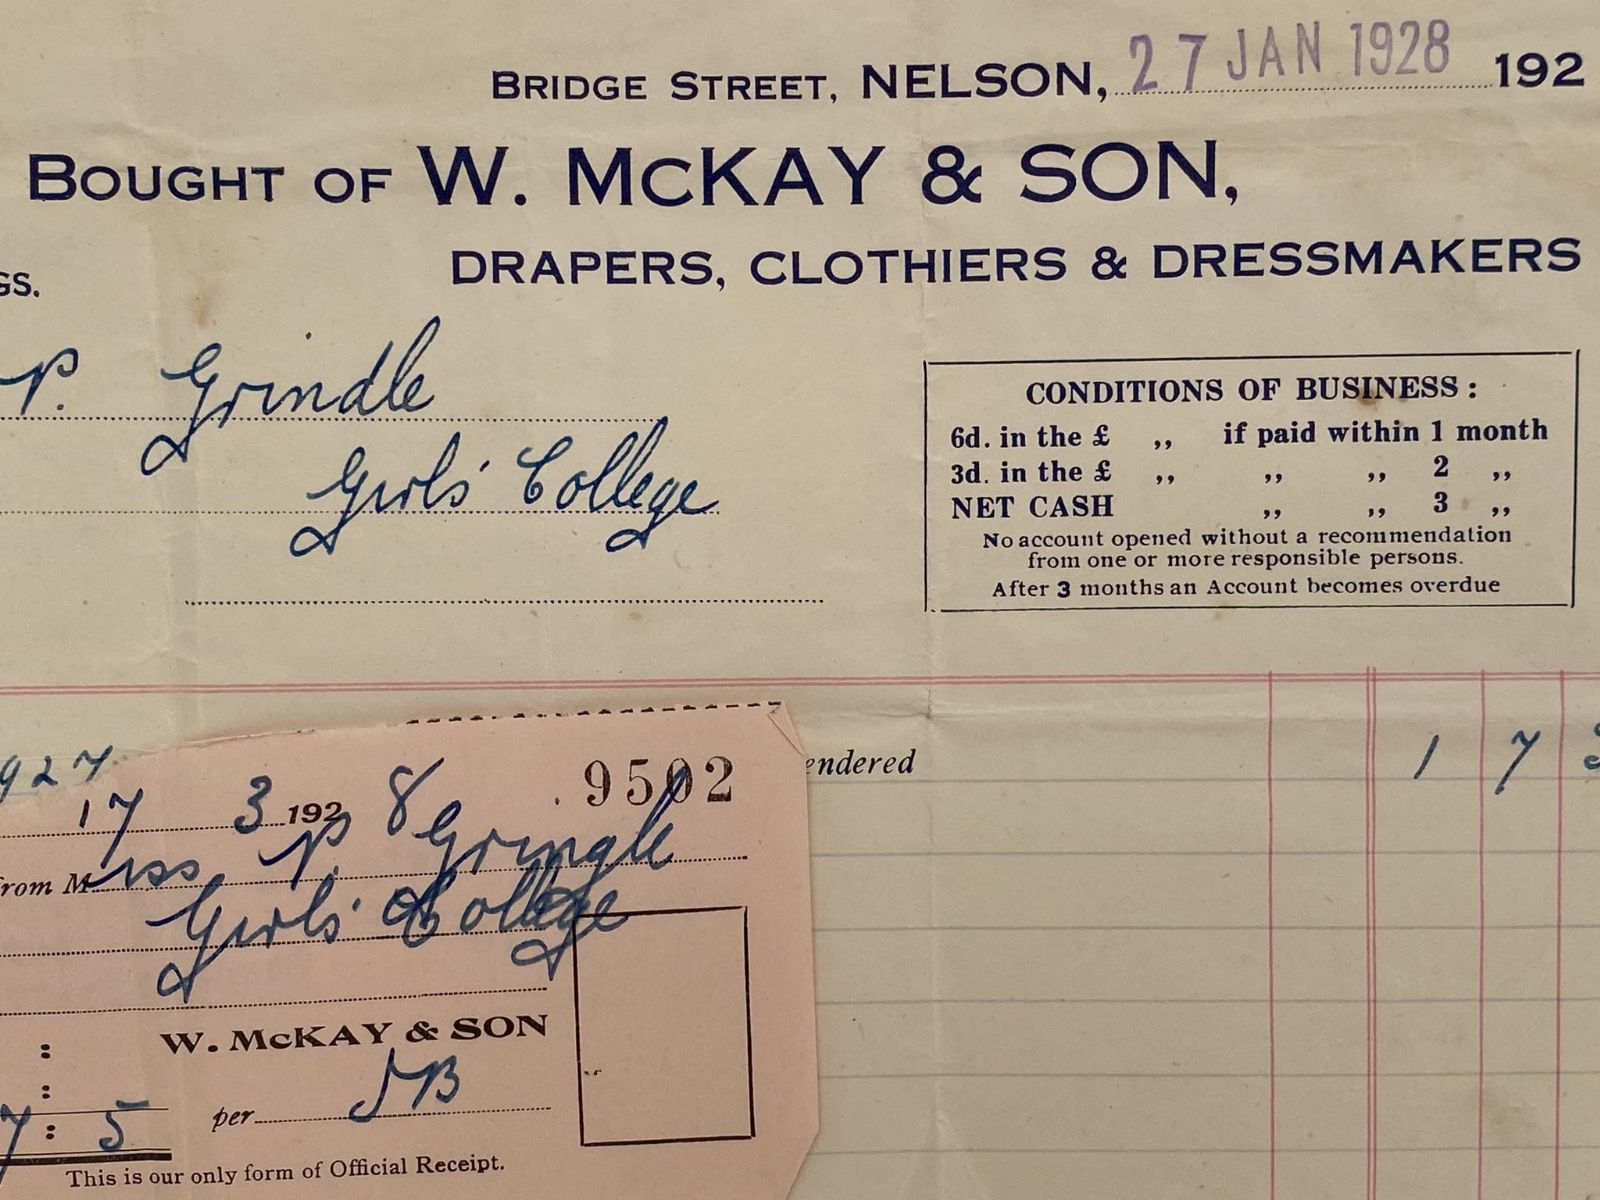 BRIDGE STREET, NELSON, 27 JAN 1928 192
BOUGHT OF W. McKAY & SON,
GS. DRAPERS, CLOTHIERS & DRESSMAKERS
P. Grindle
Girls' College
CONDITIONS OF BUSINESS:
6d. in the £ ,, if paid within 1 month
3d. in the £ ,, ,, ,, 2 ,,
NET CASH ,, ,, 3 ,,
No account opened without a recommendation
from one or more responsible persons.
After 3 months an Account becomes overdue
927 endered 1 7
9502
17 3 1928
from Miss P Gringle
Girls' College
:
W. McKAY & SON
:
7 : 5 per JB
This is our only form of Official Receipt.